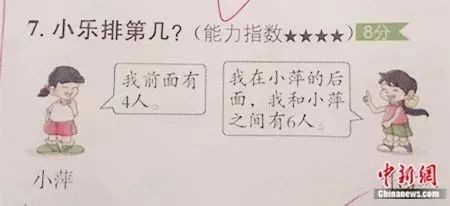 7. 小乐排第几？（能力指数★★★★） 8分
我前面有
4人。
我在小萍的后
面，我和小萍
之间有6人。
小萍
中新网